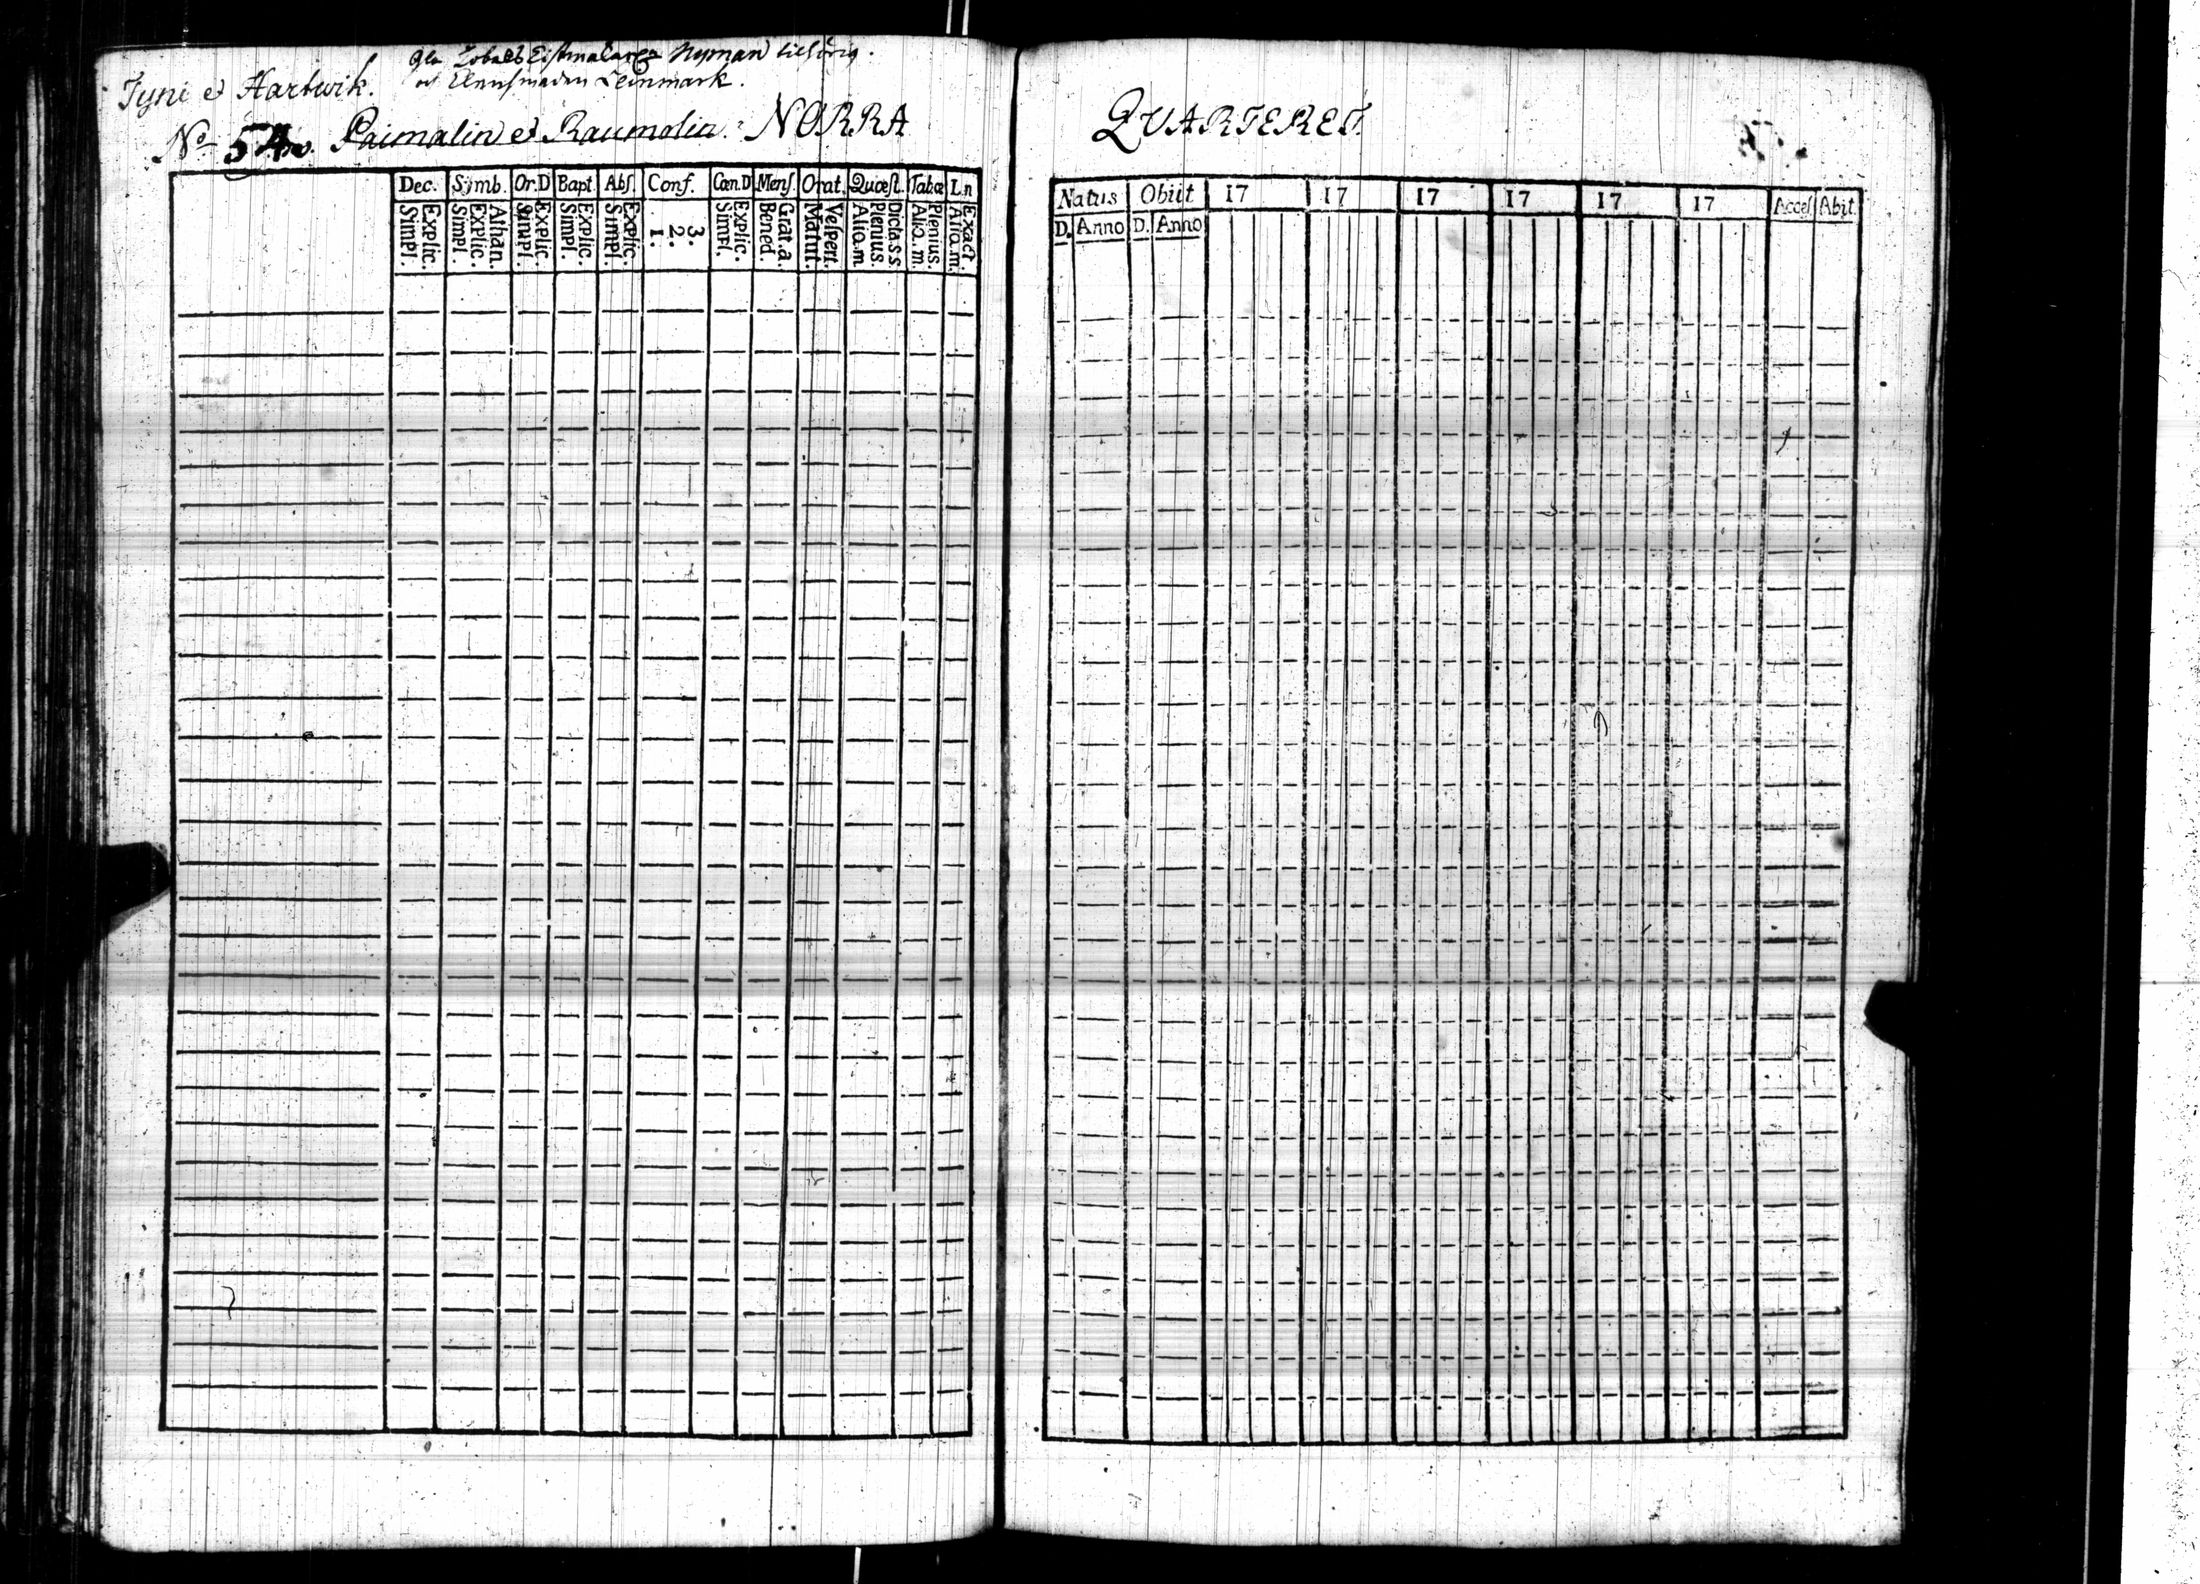 Tyni et Hartwik.
Nyman tilhörig.
et Lensmaden Leinmark.
No 54. Paimalin et Raumolin. NORRA
Dec. Symb. Or.D Bapt. Abſ. Conf. Cœn.D Menſ. Orat. Quœſt. Tabœ L.n
Explic. Simpl.
Athan. Explic. Simpl.
Explic. Simpl.
Explic. Simpl.
Explic. Simpl.
3. 2. 1.
Explic. Simpl.
Grat.a. Bened.
Veſpert. Matut.
Dicta.s.s. Plenius. Aliq.m
Plenius. Aliq.m.
Exact. Aliq.m.
QUARTERET.
Natus Obiit 17 17 17 17 17 17 Acceſ Abit.
D. Anno D. Anno